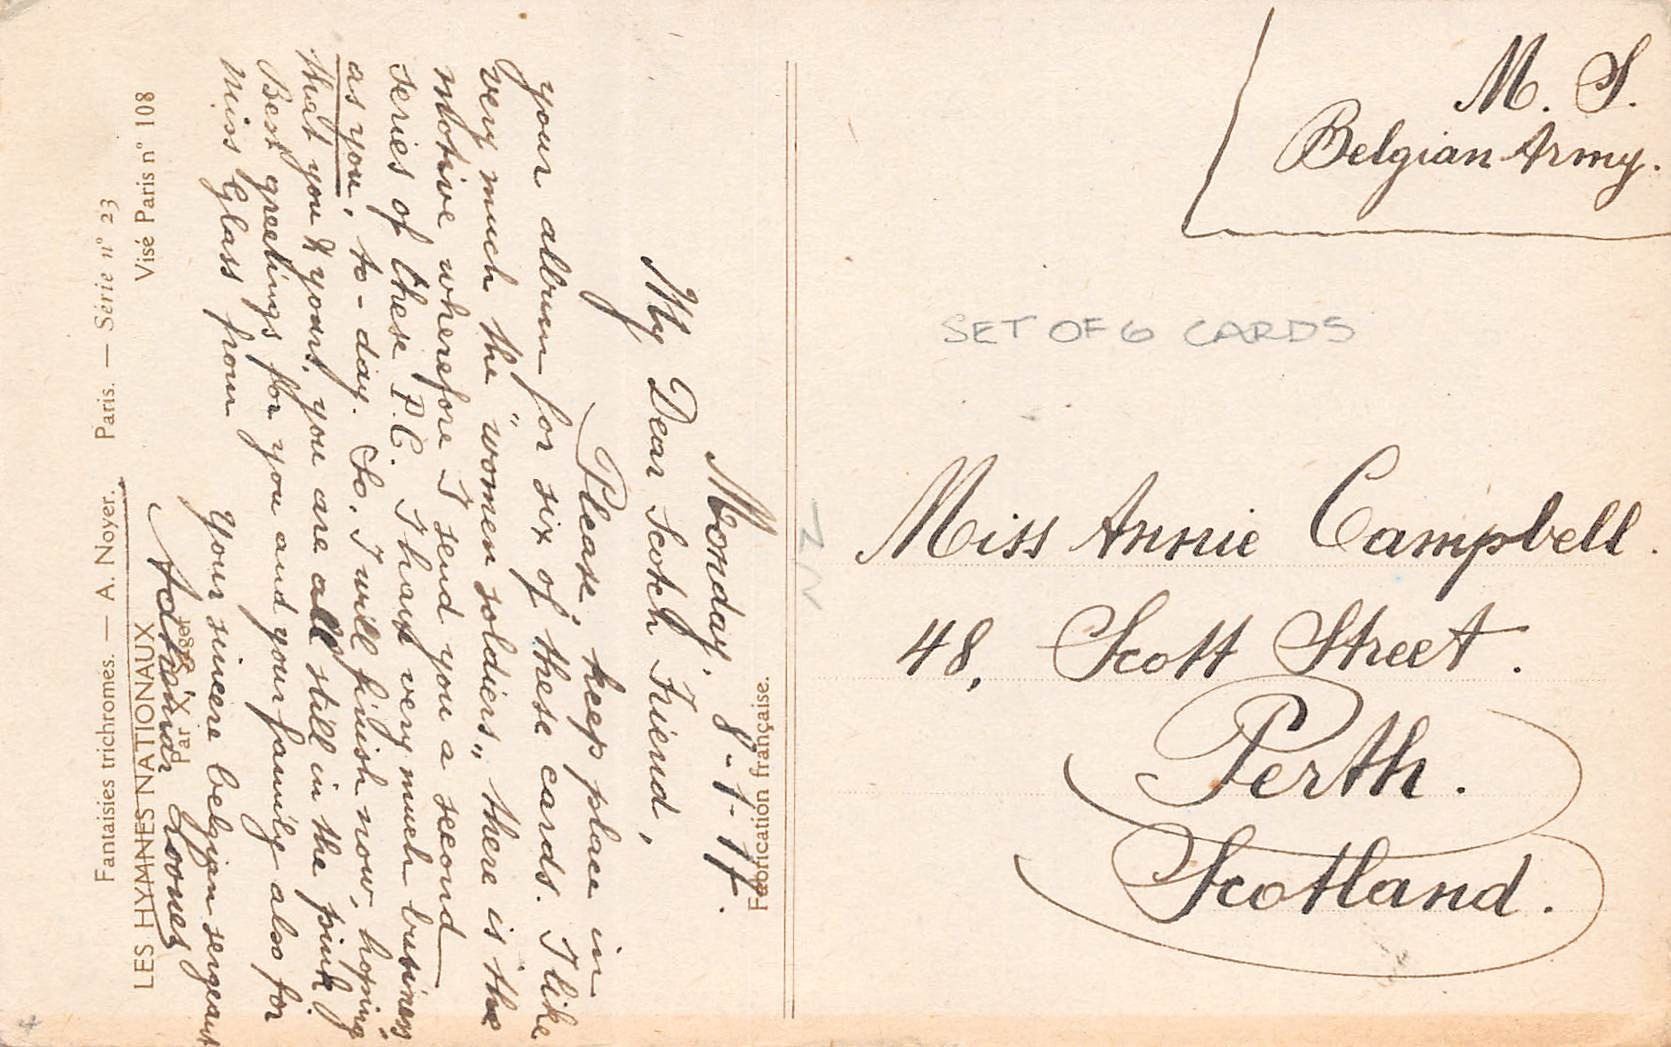 Monday. 8-1-17.
My Dear Scotch Friend,
Please, keep place in
your album for six of these cards. I like
very much the "women soldiers„ there is the
motive wherefore I send you a second
series of these P.C. I have very much business
as you, to-day. So, I will finish now, hoping
that you & yours, you are all still in the pink!
Best greetings for you and your family also for
Miss Glass from
Your sincere belgian sergeant
Fabrication française.
Fantaisies trichromes. — A. Noyer. Paris. — Série n° 23
LES HYMNES NATIONAUX Visé Paris n° 108
Par X
M. S.
Belgian Army.
SET OF 6 CARDS
NZ
Miss Annie Campbell.
48, Scott Street.
Perth.
Scotland.